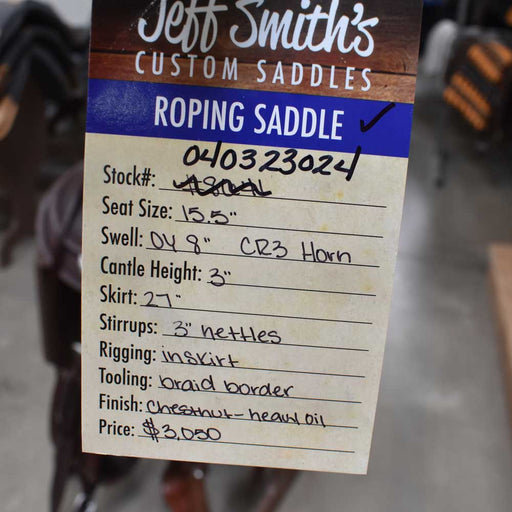 Jeff Smith's
CUSTOM SADDLES
ROPING SADDLE ✓
040323024
Stock#:
Seat Size: 15.5"
Swell: OY 8" CR3 Horn
Cantle Height: 3"
Skirt: 27"
Stirrups: 3" nettles
Rigging: inskirt
Tooling: braid border
Finish: Chestnut - heavy oil
Price: $3,050